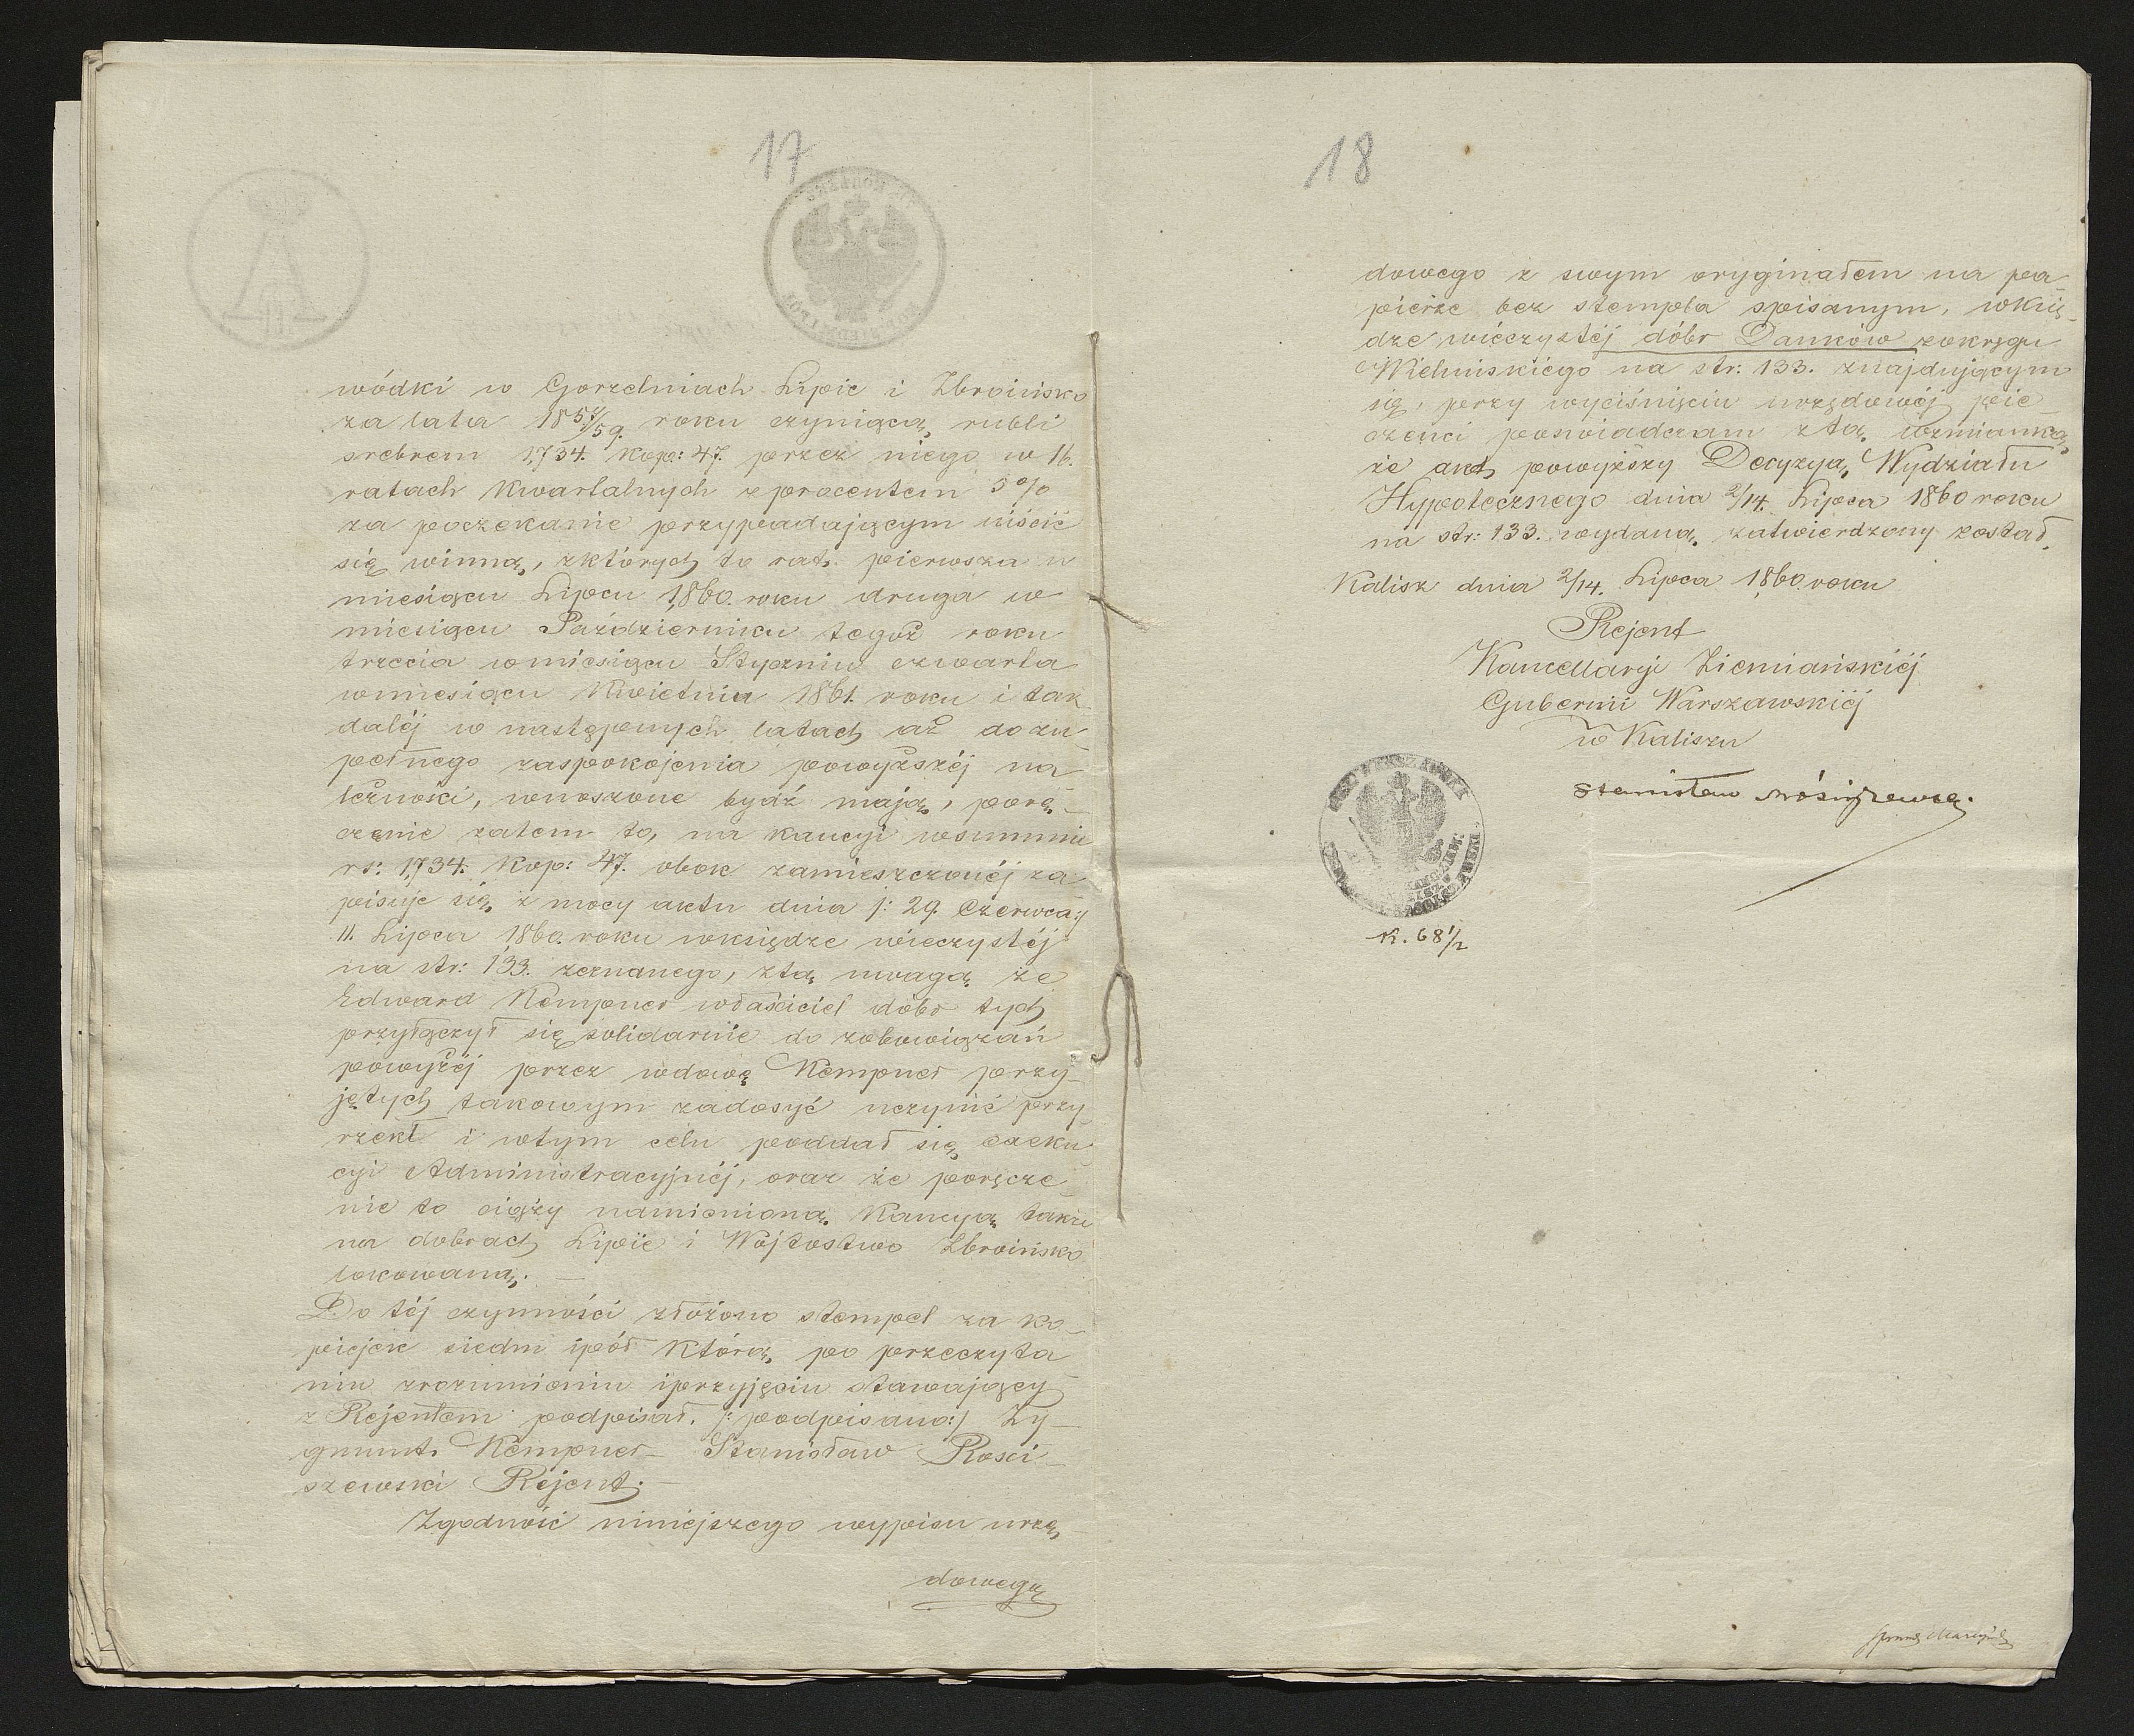 17
wódki w Gorzelniach Lipie i Zbroińsko
za lata 1857/59. roku czyniącą, rubli
srebrem 1,734. kop: 47. przez niego w 16.
ratach kwartalnych z procentem 5%
za poczekanie przypadającym uiścić
się winną, z których to rat. pierwsza w
miesiącu Lipcu 1860. roku druga w
miesiącu Październiku tegoż roku
trzecia w miesiącu Styczniu czwarta
w miesiącu Kwietniu 1861. roku i tak
daléj w następnych latach aż do zu_
pełnego zaspokojenia powyższéj na
leżności, wnoszone bydź mają, porę_
czenie zatem to, na kaucyi w summie
rs: 1,734. kop: 47. obok zamieszczonéj za
pisuje się, z mocy aktu dnia /: 29. Czerwca:/
11. Lipca 1860. roku w księdze wieczystéj
na str: 133. zeznanego, z tą uwagą że
Edward Kempner właściciel dóbr tych
przyłączył się solidarnie do zobowiązań
powyżéj przez wdowę Kempner przy_
jętych takowym zadosyć uczynić przy
rzekł i w tym celu poddał się exeku
cyi Administracyjnéj, oraz że poręcze
nie to ciąży namienioną Kaucyą także
na dobrach Lipie i Wójtostwo Zbroińsko
lokowaną. —
Do téj czynności złożono stempel za ko_
piejek siedm i pół którą, po przeczyta
niu zrozumieniu i przyjęciu stawający
z Rejentem podpisał. /: podpisano:/ Zy_
gmunt Kempner — Stanisław Rości_
szewski Rejent. —
Zgodność niniejszego wypisu urzę_
dowego
18
dowego z swym oryginałem na pa_
pierze bez stempla spisanym, w księ_
dze wieczystéj dóbr Danków z okręgu
Wieluńskiego na str: 133. znajdującym
się, przy wyciśnięciu urzędowéj pie_
czenci poswiadczam z tą, wzmianką,
że akt powyższy Decyzyą, Wydziału
Hypotecznego dnia 2/14. Lipca 1860 roku
na str: 133. wydaną, zatwierdzony został.
Kalisz dnia 2/14. Lipca 1860. roku
Rejent
Kancellaryi Ziemiańskiéj
Gubernii Warszawskiéj
w Kaliszu
Stanisław Rościszewski
K. 68 1/2